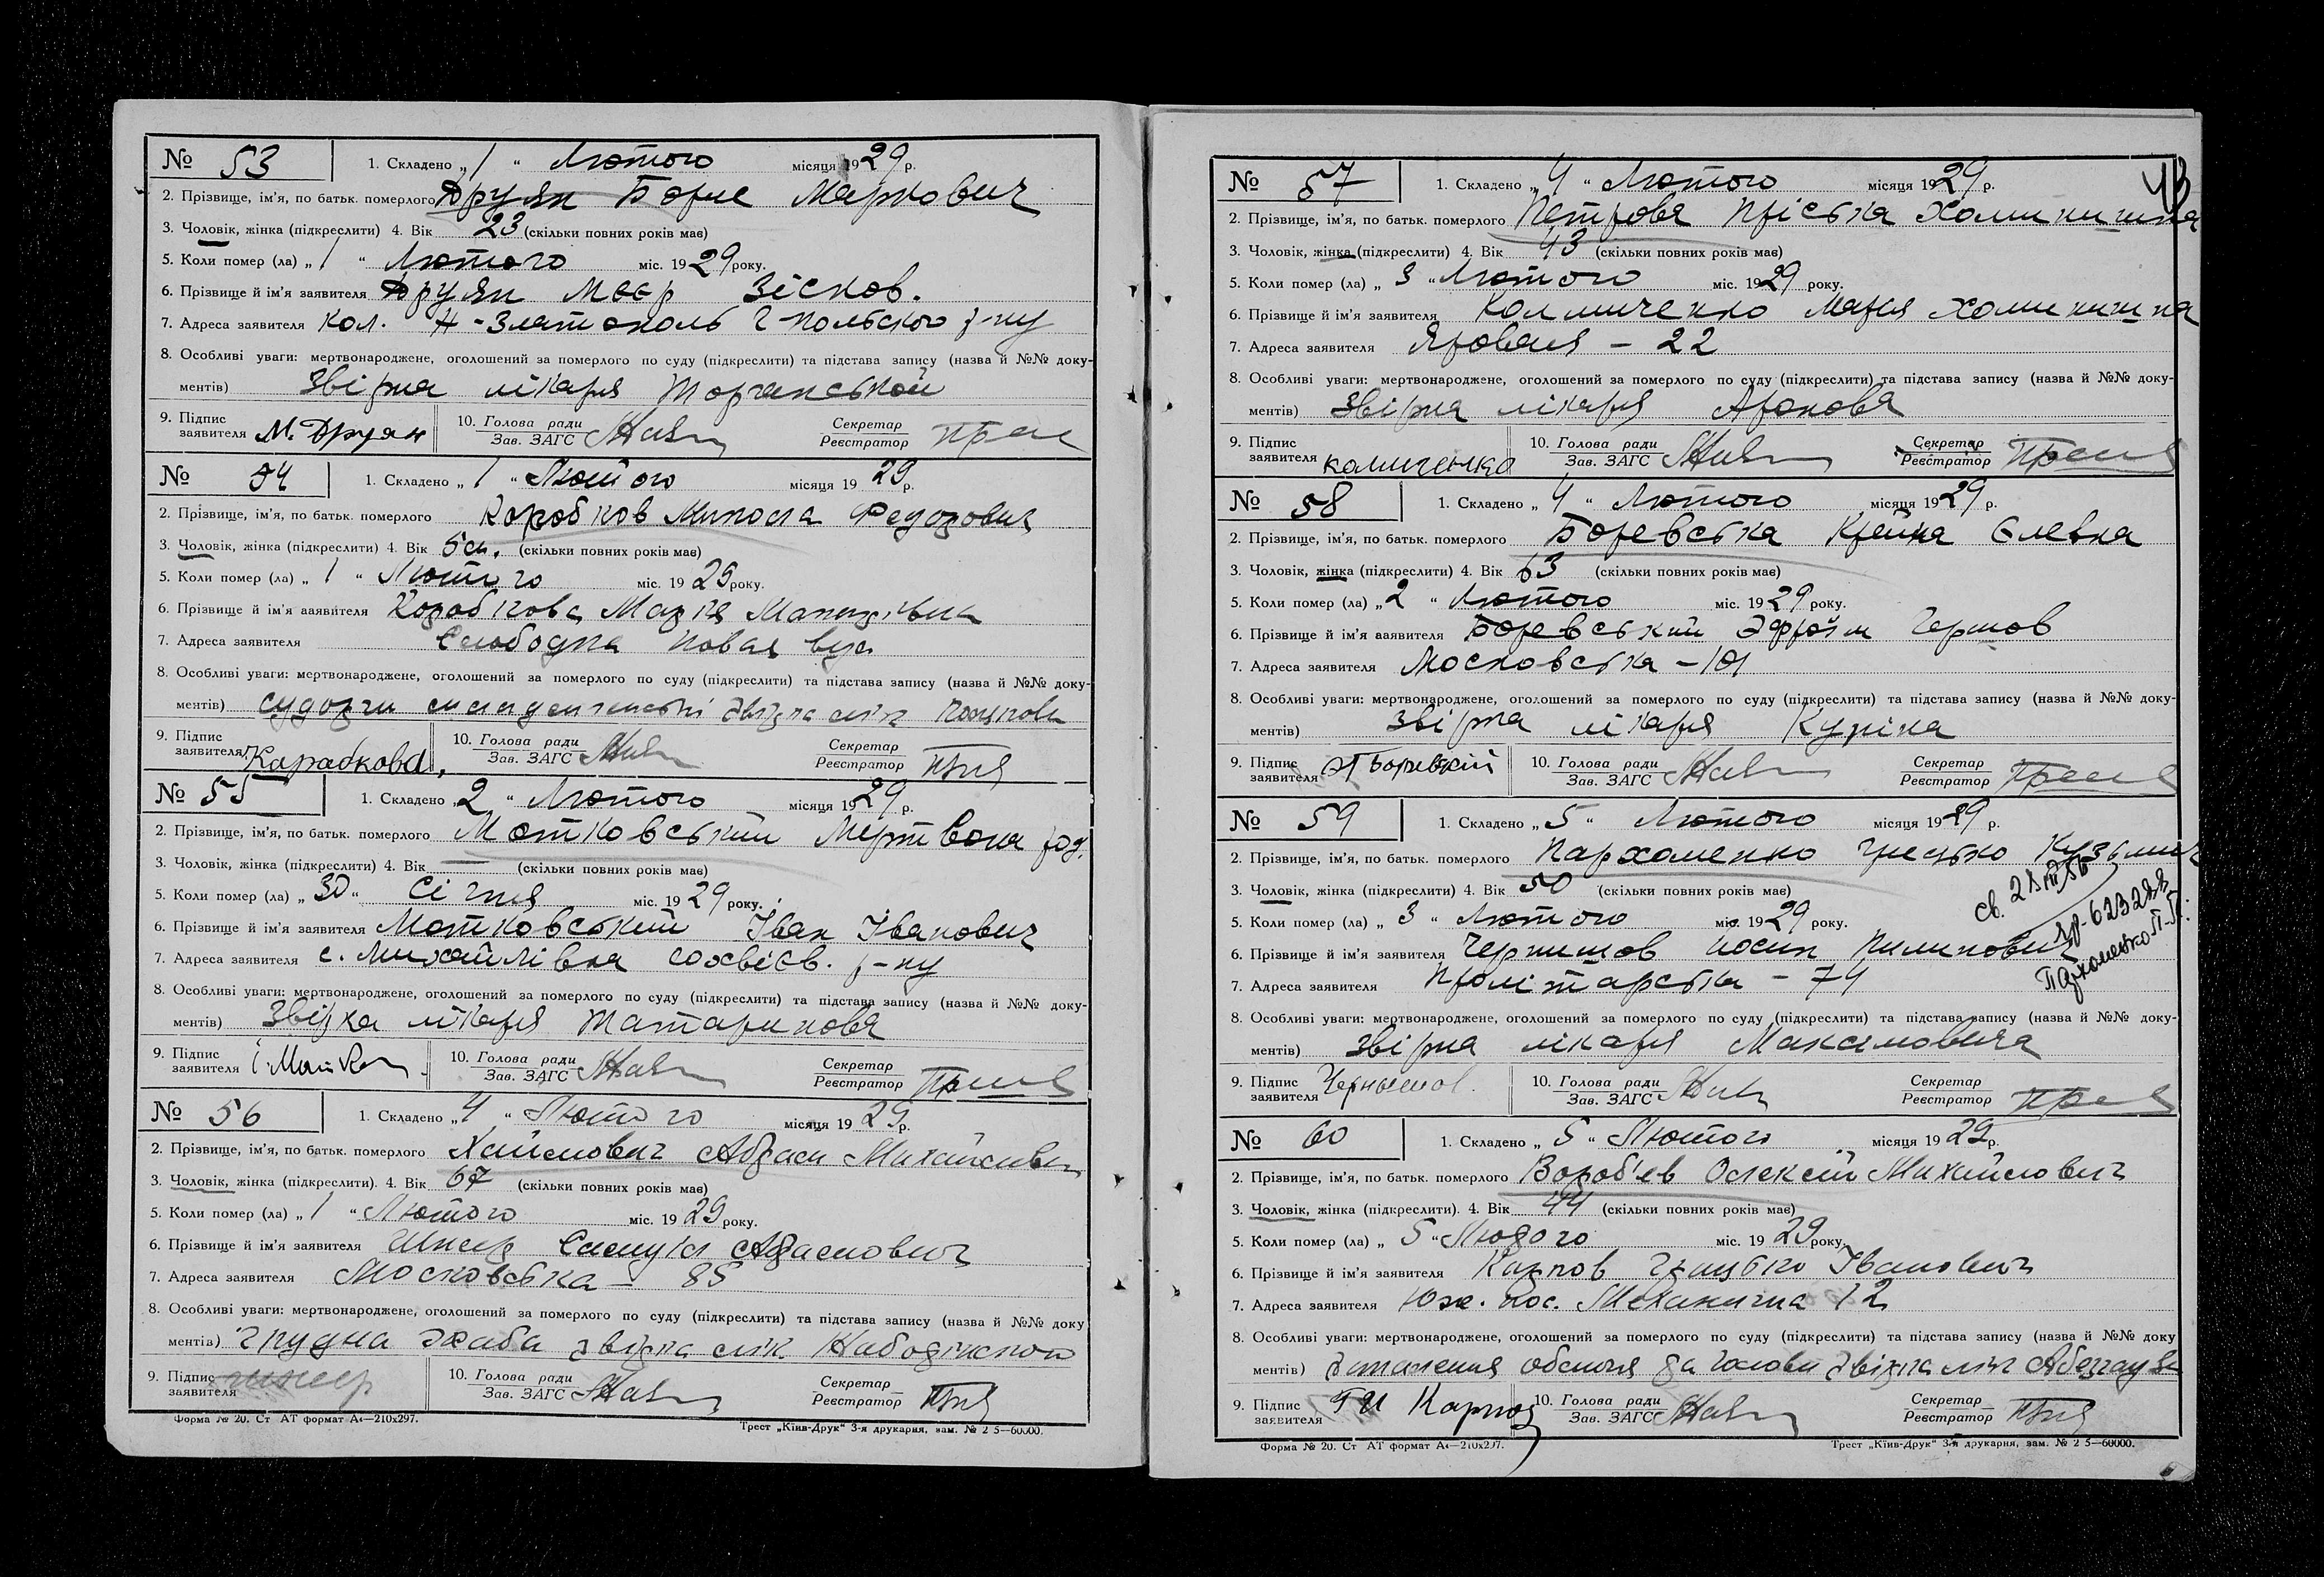 № 53 1. Складено „1“ Лютого місяця 1929 р.
2. Прізвище, ім'я, по батьк. померлого Друян Борис Маркович
3. Чоловік, жінка (підкреслити) 4. Вік 23 (скільки повних років має)
5. Коли помер (ла) „1“ Лютого міс. 1929 року.
6. Прізвище й ім'я заявителя Друян Меєр Зісков.
7. Адреса заявителя Кол. Н-Златополь Г-польского р-ну
8. Особливі уваги: мертвонароджене, оголошений за померлого по суду (підкреслити) та підстава запису (назва й №№ доку-
ментів) Звірка лікаря
9. Підпис заявителя М. Друян 10. Голова ради Зав. ЗАГС Секретар Реєстратор
№ 54 1. Складено „1“ Лютого місяця 1929 р.
2. Прізвище, ім'я, по батьк. померлого Коробков Микола Федорович
3. Чоловік, жінка (підкреслити) 4. Вік 5 м. (скільки повних років має)
5. Коли помер (ла) „1“ Лютого міс. 1929 року.
6. Прізвище й ім'я заявителя Коробкова Марія
7. Адреса заявителя Слободка новая вул
8. Особливі уваги: мертвонароджене, оголошений за померлого по суду (підкреслити) та підстава запису (назва й №№ доку-
ментів) судорги звірка лік
9. Підпис заявителя Карабкова, 10. Голова ради Зав. ЗАГС Секретар Реєстратор
№ 55 1. Складено „2“ Лютого місяця 1929 р.
2. Прізвище, ім'я, по батьк. померлого Мотковський Мертвона род.
3. Чоловік, жінка (підкреслити) 4. Вік — (скільки повних років має)
5. Коли помер (ла) „30“ Січня міс. 1929 року.
6. Прізвище й ім'я заявителя Мотковський Іван Іванович
7. Адреса заявителя с. Михайлівка софієв. р-ну
8. Особливі уваги: мертвонароджене, оголошений за померлого по суду (підкреслити) та підстава запису (назва й №№ доку-
ментів) Звірка лікаря Татаринова
9. Підпис заявителя 10. Голова ради Зав. ЗАГС Секретар Реєстратор
№ 56 1. Складено „4“ Лютого місяця 1929 р.
2. Прізвище, ім'я, по батьк. померлого Хаймович Абрам Михайлович
3. Чоловік, жінка (підкреслити). 4. Вік 67 (скільки повних років має)
5. Коли помер (ла) „1“ Лютого міс. 1929 року.
6. Прізвище й ім'я заявителя Самуїл Абрамович
7. Адреса заявителя Московська – 85
8. Особливі уваги: мертвонароджене, оголошений за померлого по суду (підкреслити) та підстава запису (назва й №№ доку
ментів) грудна жаба звірка лік
9. Підпис заявителя 10. Голова ради Зав. ЗАГС Секретар Реєстратор
Форма № 20. Ст АТ формат А4—210х297. Трест „Київ-Друк“ 3-я друкарня, зам. № 2 5—60000.
43
№ 57 1. Складено „4“ Лютого місяця 1929 р.
2. Прізвище, ім'я, по батьк. померлого Петрова Пріська
3. Чоловік, жінка (підкреслити) 4. Вік 43 (скільки повних років має)
5. Коли помер (ла) „3“ Лютого міс. 1929 року.
6. Прізвище й ім'я заявителя Колмиченко Марія
7. Адреса заявителя Яровая – 22
8. Особливі уваги: мертвонароджене, оголошений за померлого по суду (підкреслити) та підстава запису (назва й №№ доку-
ментів) Звірка лікаря Аронова
9. Підпис заявителя 10. Голова ради Зав. ЗАГС Секретар Реєстратор
№ 58 1. Складено „4“ Лютого місяця 1929 р.
2. Прізвище, ім'я, по батьк. померлого Боревська Крейна Єлевна
3. Чоловік, жінка (підкреслити) 4. Вік 63 (скільки повних років має)
5. Коли помер (ла) „2“ Лютого міс. 1929 року.
6. Прізвище й ім'я заявителя Боревський Эфроїм Гершов
7. Адреса заявителя Московська – 101
8. Особливі уваги: мертвонароджене, оголошений за померлого по суду (підкреслити) та підстава запису (назва й №№ доку-
ментів) Звірка лікаря Куріна
9. Підпис заявителя 10. Голова ради Зав. ЗАГС Секретар Реєстратор
№ 59 1. Складено „5“ Лютого місяця 1929 р.
2. Прізвище, ім'я, по батьк. померлого Пархоменко Грицько Кузьмич
3. Чоловік, жінка (підкреслити) 4. Вік 50 (скільки повних років має)
5. Коли помер (ла) „3“ Лютого міс. 1929 року.
6. Прізвище й ім'я заявителя Чернишов Йосип Пилипович
7. Адреса заявителя Пролітарська – 74
8. Особливі уваги: мертвонароджене, оголошений за померлого по суду (підкреслити) та підстава запису (назва й №№ доку-
ментів) Звірка лікаря Максимовича
9. Підпис заявителя Чернышов. 10. Голова ради Зав. ЗАГС Секретар Реєстратор
Пархоменко
№ 60 1. Складено „5“ Лютого місяця 1929 р.
2. Прізвище, ім'я, по батьк. померлого Вороб'єв Олексій Михайлович
3. Чоловік, жінка (підкреслити). 4. Вік 44 (скільки повних років має)
5. Коли помер (ла) „5“ Лютого міс. 1929 року.
6. Прізвище й ім'я заявителя Карпов Грицько Іванович
7. Адреса заявителя Юж. пос. Механична 12
8. Особливі уваги: мертвонароджене, оголошений за померлого по суду (підкреслити) та підстава запису (назва й №№ доку
ментів) звірка лік
9. Підпис заявителя Г И Карпов 10. Голова ради Зав. ЗАГС Секретар Реєстратор
Форма № 20. Ст АТ формат А4—210х297. Трест „Київ-Друк“ 3-я друкарня, зам. № 2 5—60000.